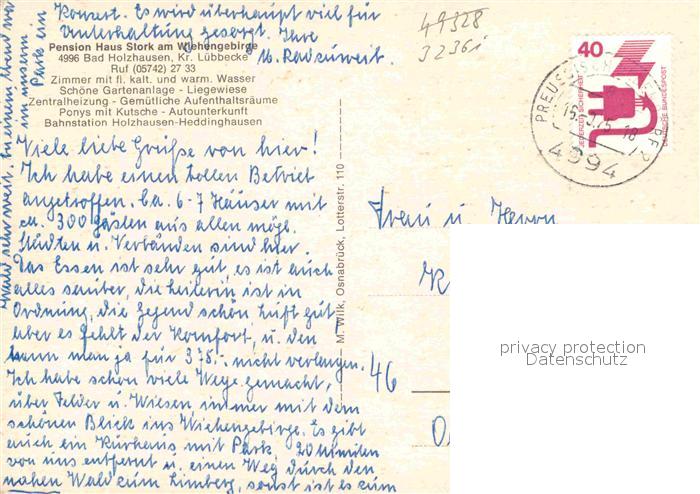 Konzert. Es wird überhaupt viel für
Unterhaltung gesorgt. Ihre
M. Radeuwert.
Pension Haus Stork am Wiehengebirge
4996 Bad Holzhausen, Kr. Lübbecke
Ruf (05742) 27 33
Zimmer mit fl. kalt. und warm. Wasser
Schöne Gartenanlage - Liegewiese
Zentralheizung - Gemütliche Aufenthaltsräume
Ponys mit Kutsche - Autounterkunft
Bahnstation Holzhausen-Heddinghausen
Viele liebe Grüße von hier!
Ich habe einen tollen Betrieb
angetroffen. Ca. 6-7 Häuser mit
ca. 300 Gästen aus allen mögl.
Städten u. Verbänden sind hier.
Das Essen ist sehr gut, es ist auch
alles sauber, die Leiterin ist in
Ordnung, die Gegend schön Luft gut,
aber es fehlt der Komfort, u. den
kann man ja für 375,- nicht verlangen.
Ich habe schon viele Wege gemacht,
über Felder u. Wiesen immer mit dem
schönen Blick ins Wiehengebirge. Es gibt
auch ein Kurhaus mit Park, 20 Minuten
von uns entfernt u. einen Weg durch den
nahen Wald zum Limberg, sonst ist es zum
Wald sehr weit. An einem Abend war
in unserm
Park ein
M. Wilk, Osnabrück, Lotterstr. 110
49328
3236i
40
JEDERZEIT SICHERHEIT
DEUTSCHE BUNDESPOST
4994
18
Frau u. Herrn
K
46
O
privacy protection
Datenschutz